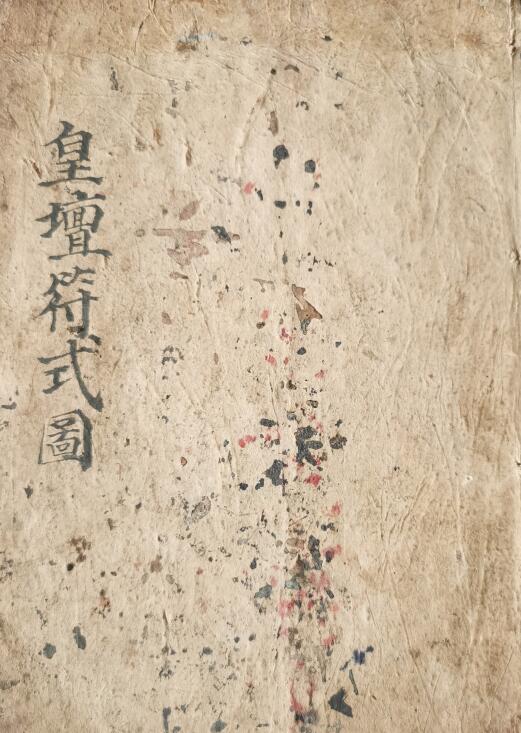 皇壇符式啚